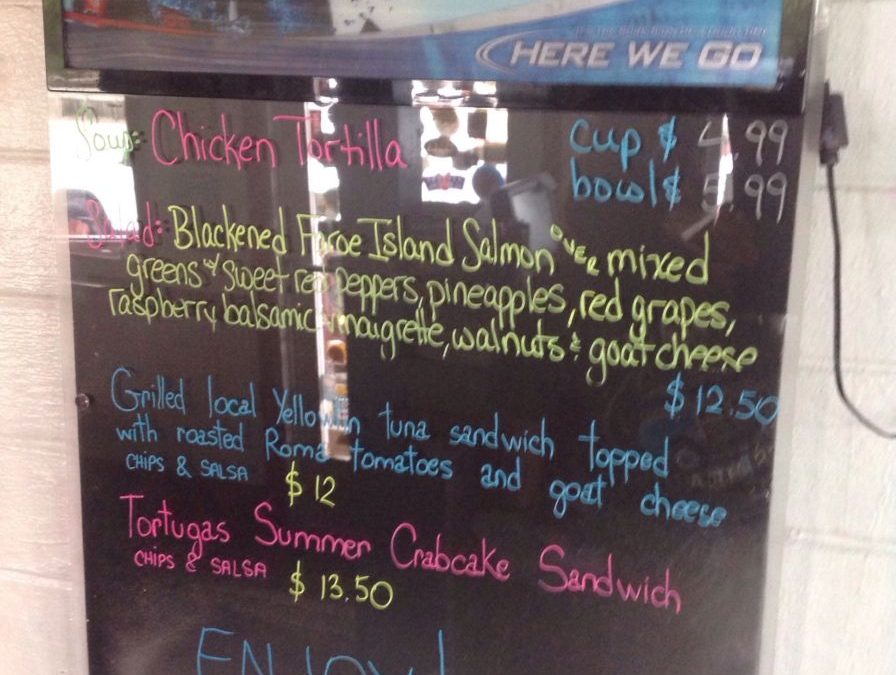 HERE WE GO
Soup: Chicken Tortilla cup $ 4.99
bowl $ 5.99
Salad: Blackened Faroe Island Salmon OVER mixed
greens w/ sweet red peppers, pineapples, red grapes,
raspberry balsamic vinaigrette, walnuts & goat cheese
$12.50
Grilled local Yellowfin tuna sandwich topped
with roasted Roma tomatoes and goat cheese
CHIPS & SALSA $12
Tortugas Summer Crabcake Sandwich
CHIPS & SALSA $13.50
ENJOY!